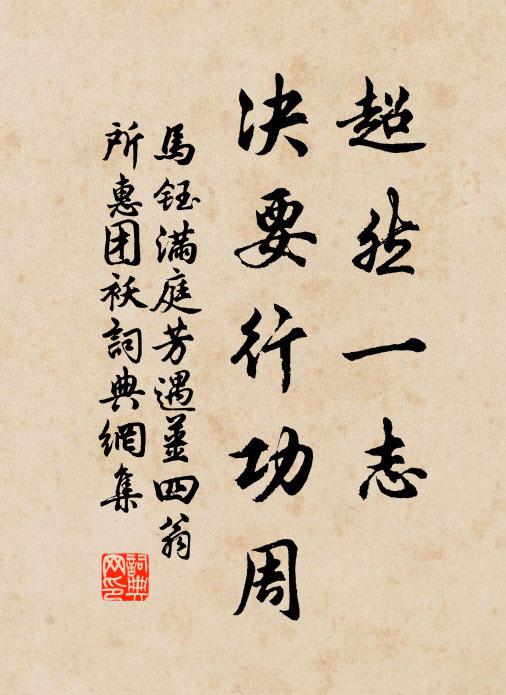 超然一志
决要行功周
馬鈺滿庭芳遇姜四翁
所惠团袄詞典網集
詞典
网印